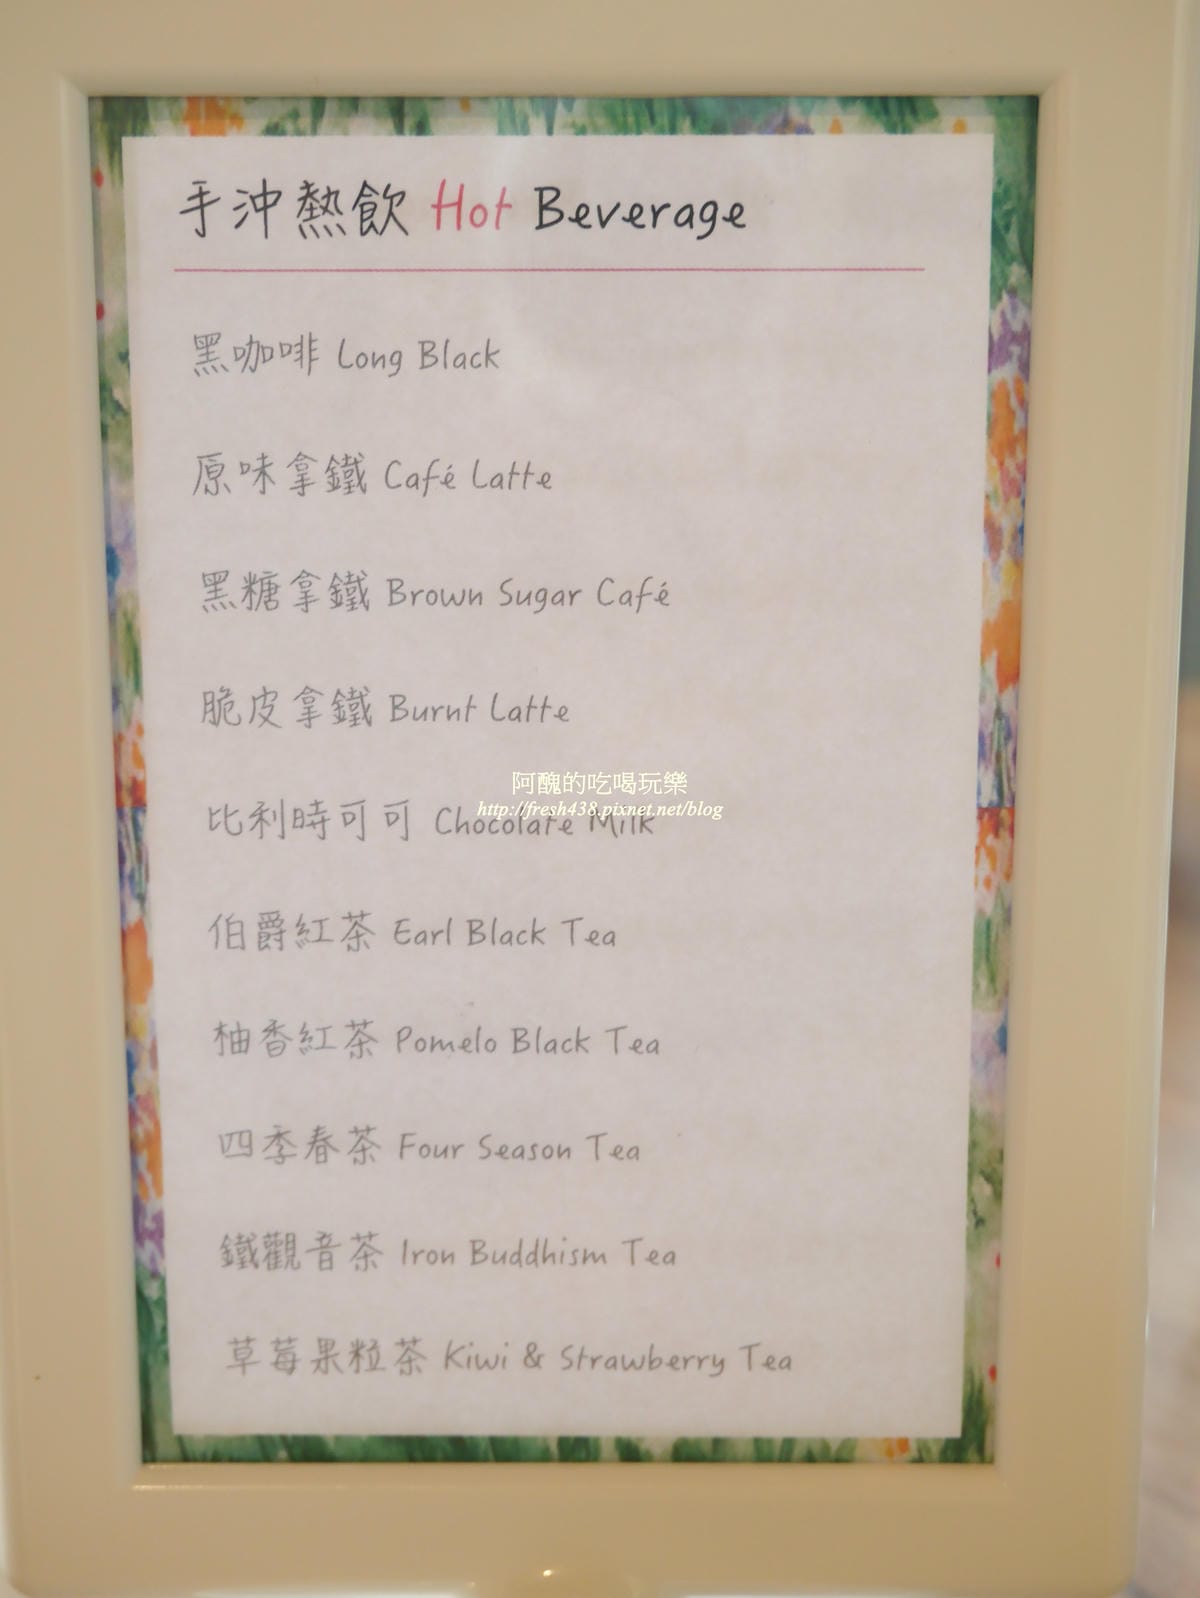 手沖熱飲 Hot Beverage
黑咖啡 Long Black
原味拿鐵 Café Latte
黑糖拿鐵 Brown Sugar Café
脆皮拿鐵 Burnt Latte
阿醜的吃喝玩樂
http://fresh438.pixnet.net/blog
比利時可可 Chocolate Milk
伯爵紅茶 Earl Black Tea
柚香紅茶 Pomelo Black Tea
四季春茶 Four Season Tea
鐵觀音茶 Iron Buddhism Tea
草莓果粒茶 Kiwi & Strawberry Tea